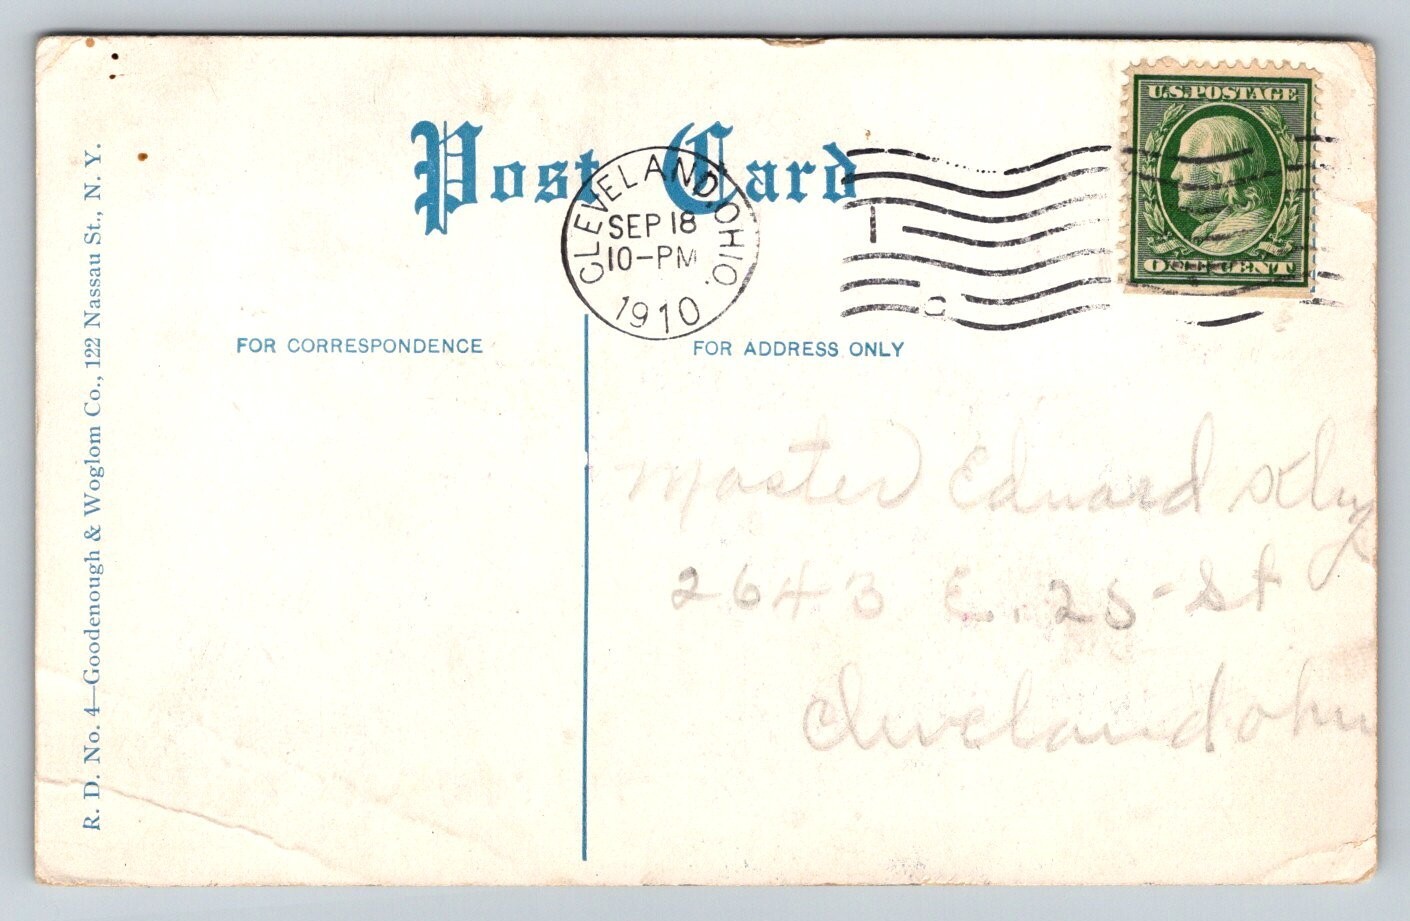 Post Card
CLEVELAND, OHIO.
SEP 18
10-PM
1910
U.S. POSTAGE
ONE CENT
FOR CORRESPONDENCE
FOR ADDRESS ONLY
Master Edward
2643 E. 25 - St
Cleveland Ohio
R. D. No. 4—Goodenough & Woglom Co., 122 Nassau St., N. Y.